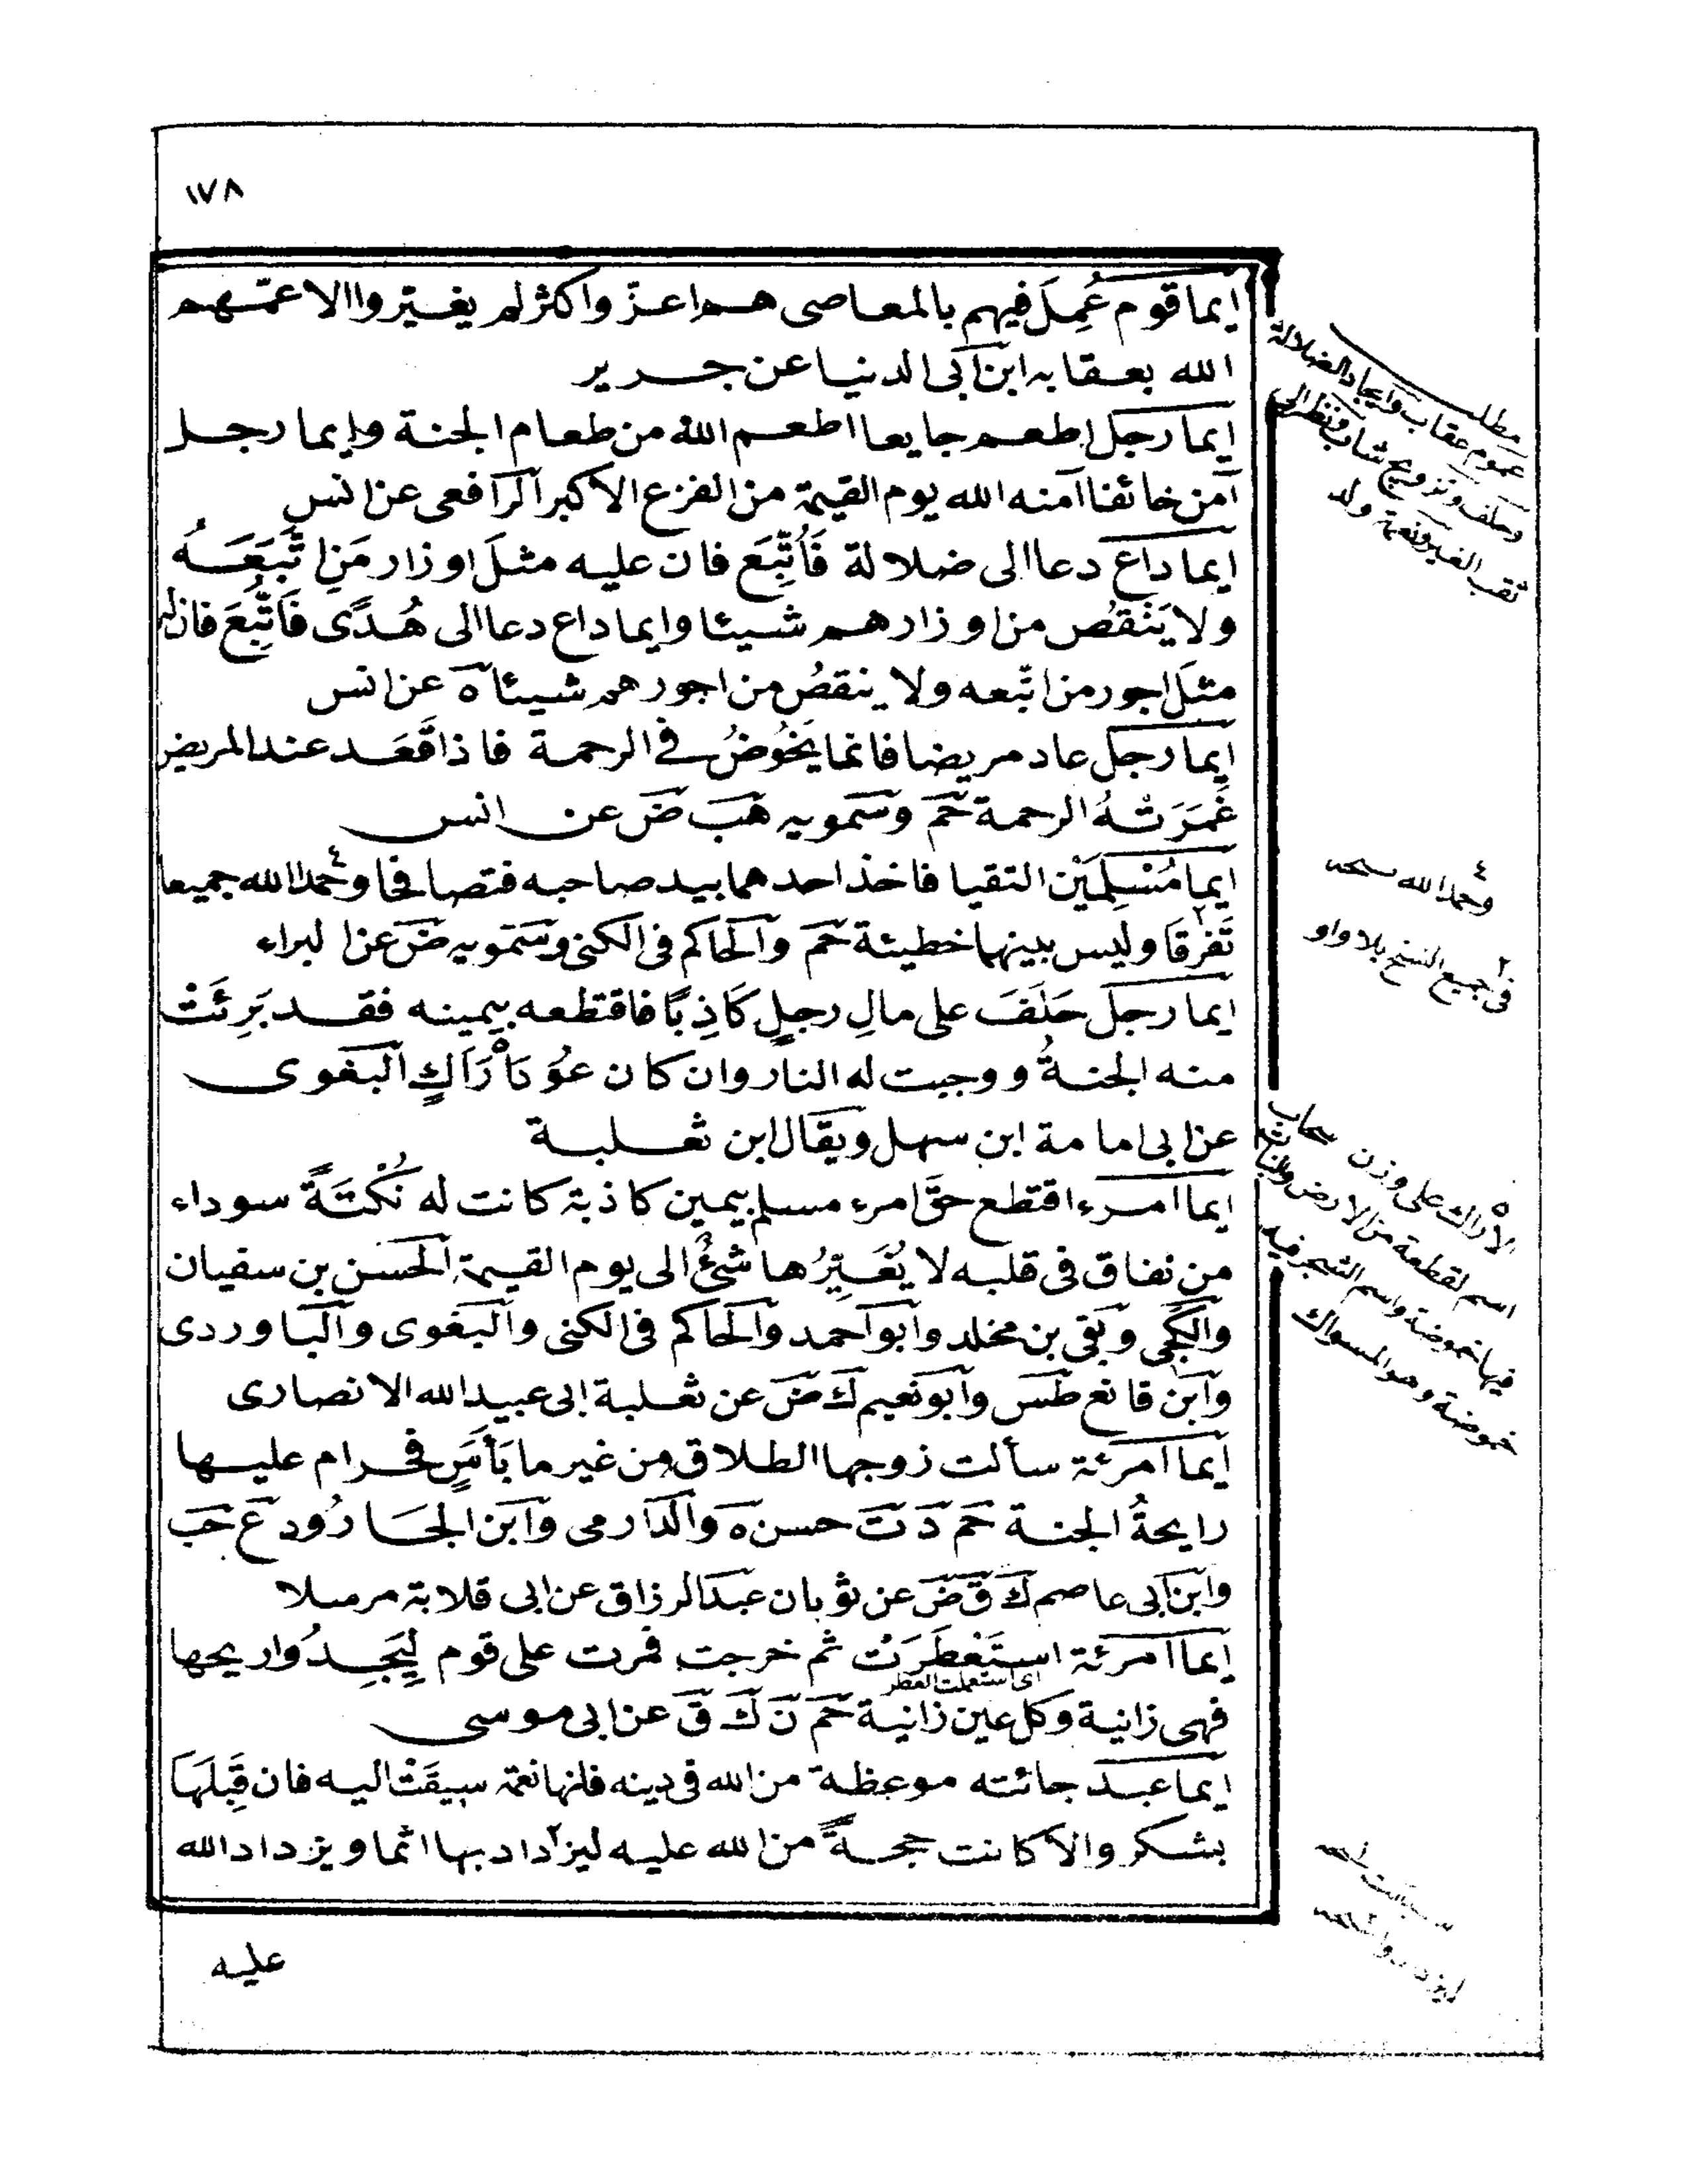 ١٧٨
ايما قوم عُمِلَ فيهم بالمعاصى هم اعزّ واكثر لم يغيّروا الا عمّهم
الله بعقابه ابن ابى الدنيا عن جرير
ايما رجل اطعم جايعا اطعم الله من طعام الجنة وايما رجل
آمن خائفا آمنه الله يوم القيمة من الفزع الاكبر الرافعى عن انس
ايما داع دعا الى ضلالة فَاُتُّبِعَ فان عليه مثلَ اوزار مَنِ اتَّبَعَهُ
ولا يَنْقُصُ من اوزارهم شيئا وايما داع دعا الى هُدًى فَاتُّبِعَ فان له
مثلَ اجور من اتّبعه ولا ينقصُ من اجورهم شيئا ه عن انس
ايما رجل عاد مريضا فانما يَخُوضُ فى الرحمة فاذا قَعَد عند المريض
غَمَرَتْهُ الرحمة حم وسمويه هب ض عن انس
ايما مُسْلِمَيْن التقيا فاخذ احدهما بيد صاحبه فتصافحا وحمدا٤ الله جميعا
تَفَرقَا٢ وليس بينهما خطيئة حم والحاكم فى الكنى وسمويه ض عن البراء
ايما رجل حَلَفَ على مالِ رجلٍ كَاذِبًا فاقتطعه بيمينه فقد بَرِئَتْ
منه الجنةُ ووجبت له النار وان كان عُودَ اَرَاكٍ٥ البغوى
عن ابى امامة ابن سهل ويقال ابن ثعلبة
ايما امرء اقتطع حقَّ امرء مسلم بيمين كاذبة كانت له نُكْتَةً سوداء
من نفاق فى قلبه لا يُغَيِّرُها شئٌ الى يوم القيمة الحسن بن سفيان
والكجى وبقى بن مخلد وابو احمد والحاكم فى الكنى والبغوى والباوردى
وابن قانع طس وابو نعيم ك ض عن ثعلبة ابى عبيد الله الانصارى
ايما امرئة سألت زوجها الطلاق من غير ما بَأسٍ فحرام عليها
رايحةُ الجنة حم د ت حسن ه والدارمى وابن الجارُود ع حب
وابن ابى عاصم ك ق ض عن ثوبان عبد الرزاق عن ابى قلابة مرسلا
ايما امرئة استَعْطَرَتْ ثم خرجت فمرت على قوم لِيَجِدُوا ريحها
اى استعملت العطر
فهى زانية وكل عين زانية حم ن ك ق عن ابى موسى
ايما عبد جائته موعظة من الله فى دينه فانها نعمة سيقَتْ اليه فان قَبِلَهَا
بشكر والا كانت حجةً من الله عليه ليزداد بها اثما ويزداد الله
عليه
مطلب
عموم عقاب وايجاد الضلالة
وحلف وتزويج شاب ونظر الى
ثقب الغير ونعمة ولد
٤ وحمدا الله نسخه
٢ فى جميع النسخ بلا واو
٥ الاراك على وزن سحاب
اسم لقطعة من الارض والنبات
فيها حموضة واسم الشجر فيه
حموضة وهو المسواك